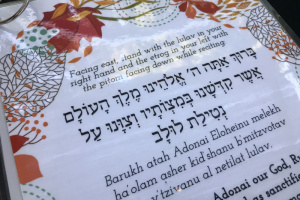 Facing east, stand with the lulav in your
right hand and the etrog in your left with
the pitom facing down while reciting
בָּרוּךְ אַתָּה ה' אֱלֹהֵינוּ מֶלֶךְ הָעוֹלָם
אֲשֶׁר קִדְּשָׁנוּ בְּמִצְוֹתָיו וְצִוָּנוּ עַל
נְטִילַת לוּלָב
Barukh atah Adonai Eloheinu melekh
ha'olam asher kid'shanu b'mitzvotav
v'tzivanu al netilat lulav.
Adonai our God, R
sanctifie